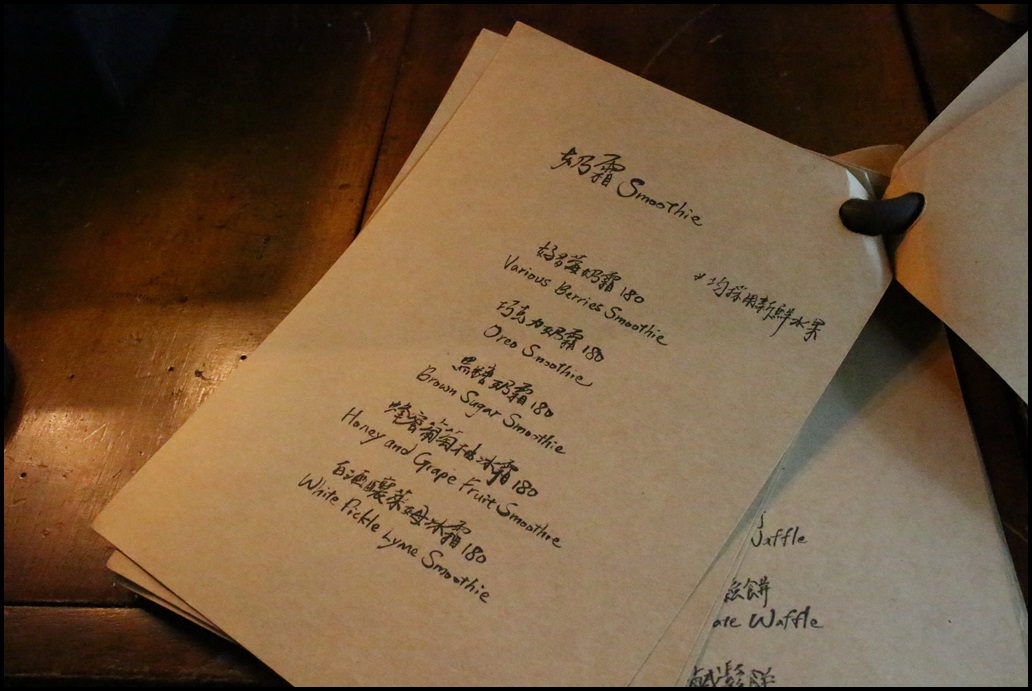 奶霜 Smoothie
*均採用新鮮水果
好多莓奶霜 180
Various Berries Smoothie
巧克力奶霜 180
Oreo Smoothie
黑糖奶霜 180
Brown Sugar Smoothie
蜂蜜葡萄柚冰霜 180
Honey and Grape Fruit Smoothie
白酒釀萊姆冰霜 180
White Pickle Lyme Smoothie
Waffle
鬆餅
ate Waffle
鹹鬆餅